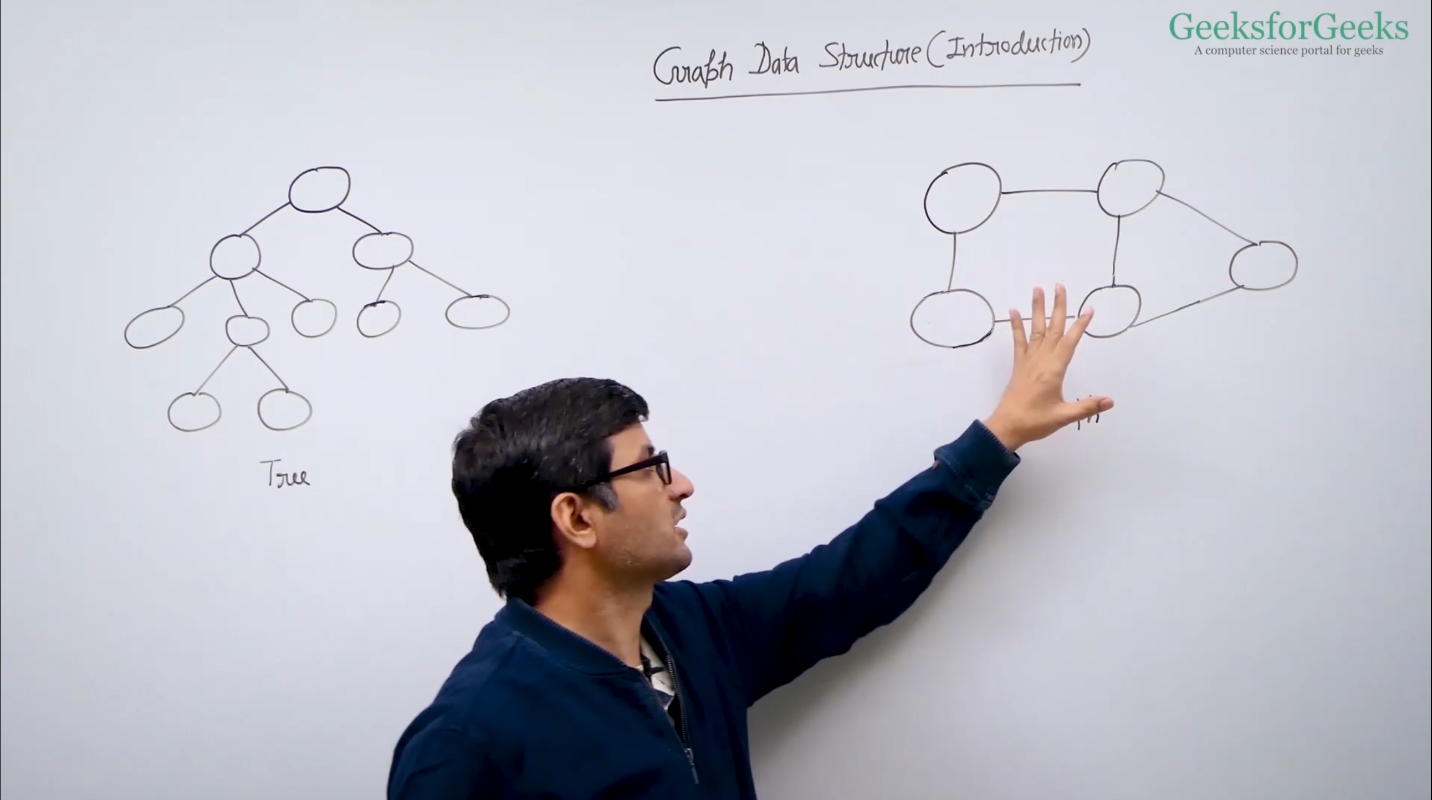 GeeksforGeeks
A computer science portal for geeks
Graph Data Structure (Introduction)
Tree